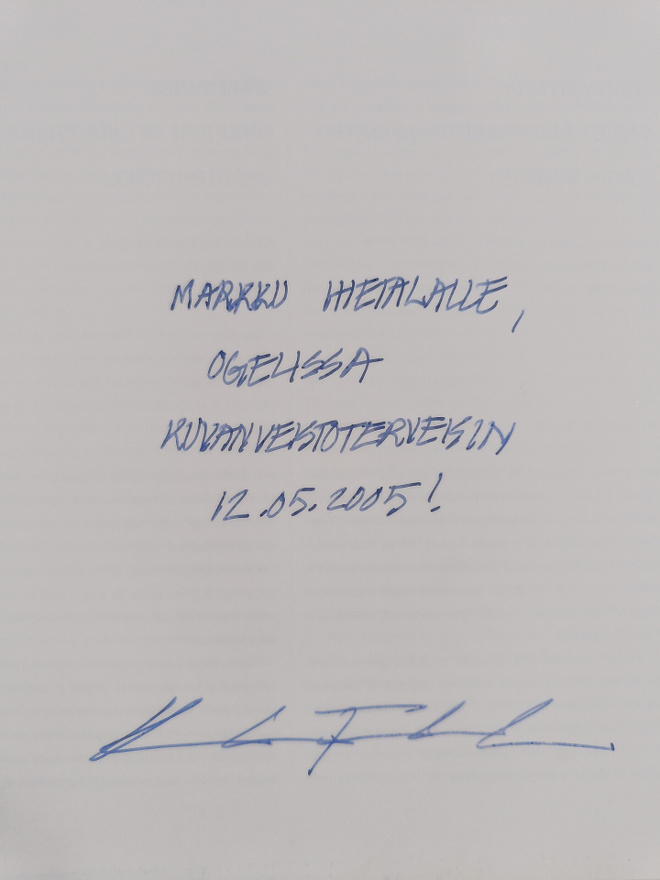 MARKKU HIETALALLE,
OGELISSA
KUVANVEISTOTERVEISIN
12.05.2005!